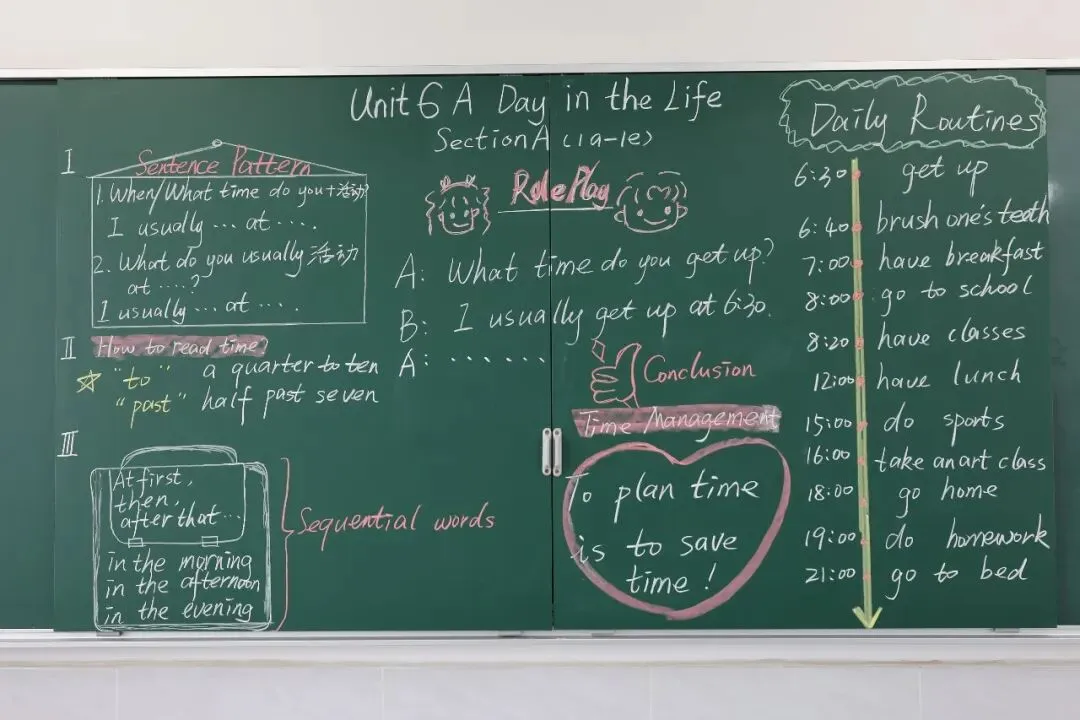 Unit 6 A Day in the Life
Section A (1a-1e)
I
Sentence Pattern
1. When/What time do you+活动?
I usually ... at ....
2. What do you usually 活动
at ....?
I usually ... at ...
II How to read time?
"to" a quarter to ten
"past" half past seven
III
At first,
then,
after that...
in the morning
in the afternoon
in the evening
Sequential words
Role Play
A: What time do you get up?
B: I usually get up at 6:30.
A: ......
Conclusion
Time Management
To plan time
is to save
time!
Daily Routines
6:30 get up
6:40 brush one's teeth
7:00 have breakfast
8:00 go to school
8:20 have classes
12:00 have lunch
15:00 do sports
16:00 take an art class
18:00 go home
19:00 do homework
21:00 go to bed